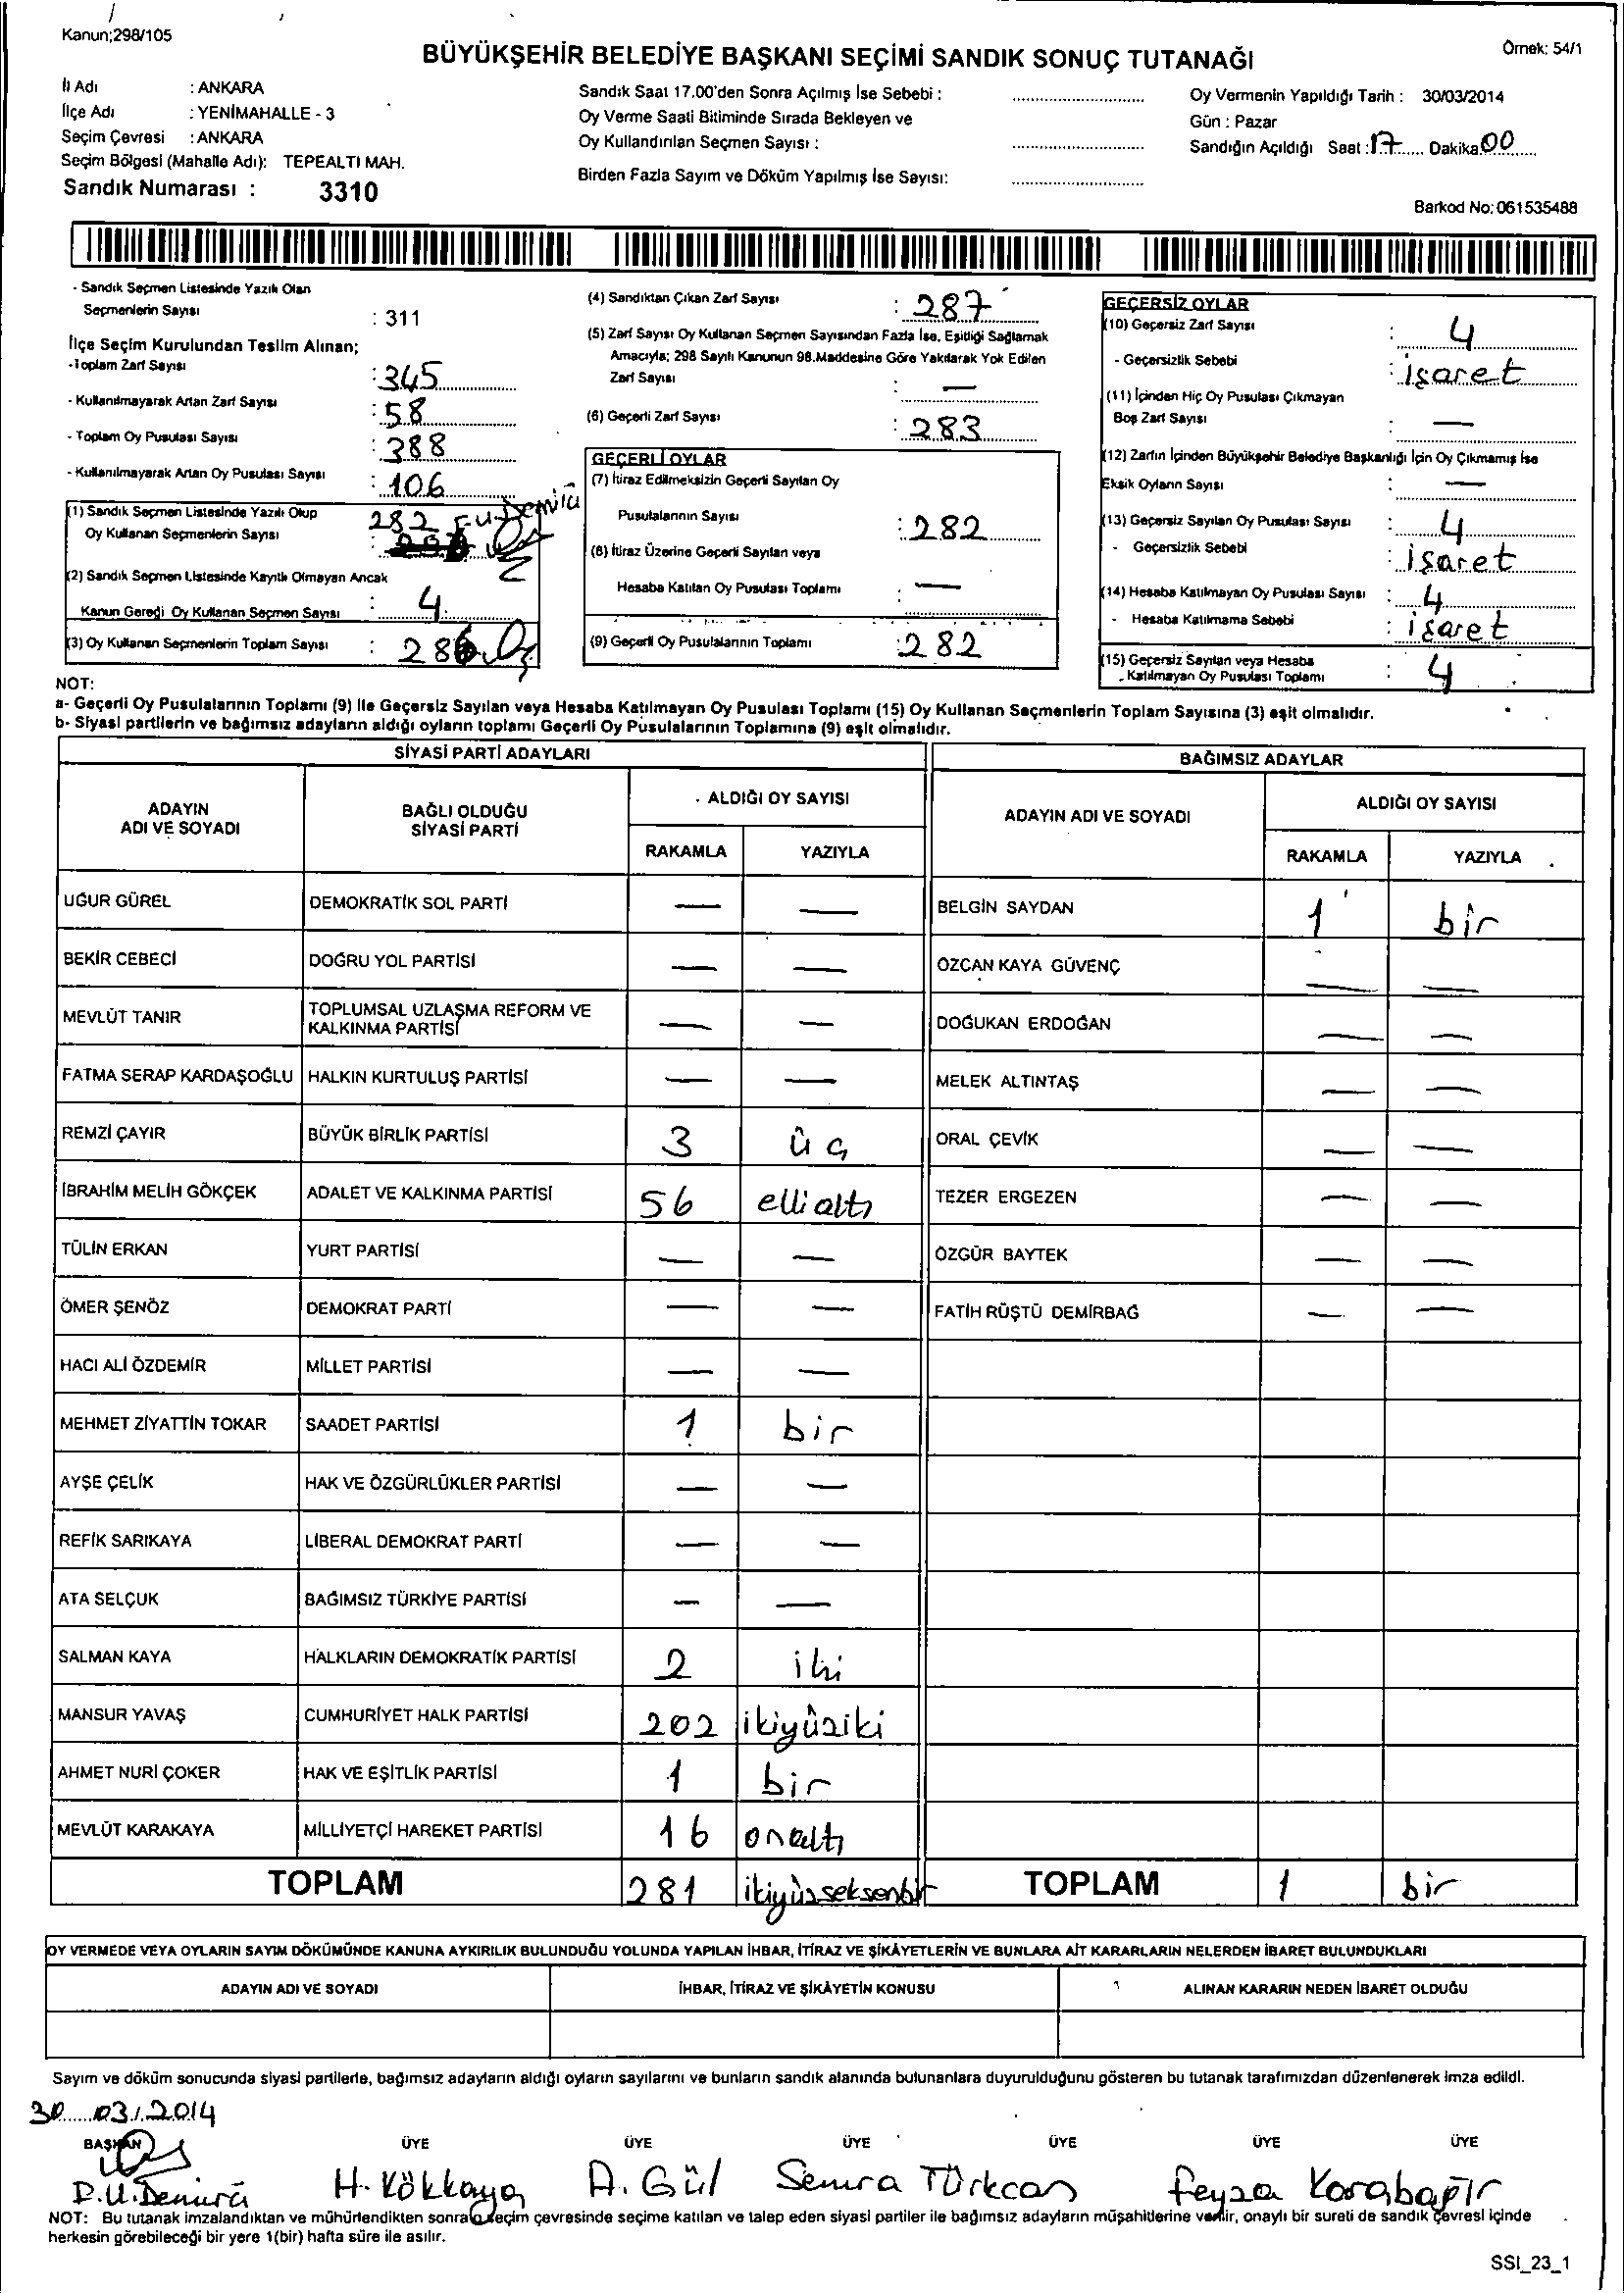 Kanun;298/105
BÜYÜKŞEHİR BELEDİYE BAŞKANI SEÇİMİ SANDIK SONUÇ TUTANAĞI
Örnek: 54/1
İl Adı : ANKARA
İlçe Adı : YENİMAHALLE - 3
Seçim Çevresi : ANKARA
Seçim Bölgesi (Mahalle Adı): TEPEALTI MAH.
Sandık Numarası : 3310
Sandık Saat 17.00'den Sonra Açılmış İse Sebebi :
Oy Verme Saati Bitiminde Sırada Bekleyen ve
Oy Kullandırılan Seçmen Sayısı :
Birden Fazla Sayım ve Döküm Yapılmış İse Sayısı:
Oy Vermenin Yapıldığı Tarih : 30/03/2014
Gün : Pazar
Sandığın Açıldığı Saat : 17 Dakika 00
Barkod No: 061535488
- Sandık Seçmen Listesinde Yazılı Olan
Seçmenlerin Sayısı : 311
İlçe Seçim Kurulundan Teslim Alınan;
-Toplam Zarf Sayısı : 345
- Kullanılmayarak Artan Zarf Sayısı : 58
- Toplam Oy Pusulası Sayısı : 388
- Kullanılmayarak Artan Oy Pusulası Sayısı : 106
(1) Sandık Seçmen Listesinde Yazılı Olup
Oy Kullanan Seçmenlerin Sayısı : 282
(2) Sandık Seçmen Listesinde Kayıtlı Olmayan Ancak
Kanun Gereği Oy Kullanan Seçmen Sayısı : 4
(3) Oy Kullanan Seçmenlerin Toplam Sayısı : 286
(4) Sandıktan Çıkan Zarf Sayısı : 287
(5) Zarf Sayısı Oy Kullanan Seçmen Sayısından Fazla İse, Eşitliği Sağlamak
Amacıyla; 298 Sayılı Kanunun 98.Maddesine Göre Yakılarak Yok Edilen
Zarf Sayısı : —
(6) Geçerli Zarf Sayısı : 283
GEÇERLİ OYLAR
(7) İtiraz Edilmeksizin Geçerli Sayılan Oy
Pusulalarının Sayısı : 282
(8) İtiraz Üzerine Geçerli Sayılan veya
Hesaba Katılan Oy Pusulası Toplamı : —
(9) Geçerli Oy Pusulalarının Toplamı : 282
GEÇERSİZ OYLAR
(10) Geçersiz Zarf Sayısı : 4
- Geçersizlik Sebebi : işaret
(11) İçinden Hiç Oy Pusulası Çıkmayan
Boş Zarf Sayısı : —
(12) Zarfın İçinden Büyükşehir Belediye Başkanlığı İçin Oy Çıkmamış İse
Eksik Oyların Sayısı : —
(13) Geçersiz Sayılan Oy Pusulası Sayısı : 4
- Geçersizlik Sebebi : işaret
(14) Hesaba Katılmayan Oy Pusulası Sayısı : 4
- Hesaba Katılmama Sebebi : işaret
(15) Geçersiz Sayılan veya Hesaba
Katılmayan Oy Pusulası Toplamı : 4
NOT:
a- Geçerli Oy Pusulalarının Toplamı (9) ile Geçersiz Sayılan veya Hesaba Katılmayan Oy Pusulası Toplamı (15) Oy Kullanan Seçmenlerin Toplam Sayısına (3) eşit olmalıdır.
b- Siyasi partilerin ve bağımsız adayların aldığı oyların toplamı Geçerli Oy Pusulalarının Toplamına (9) eşit olmalıdır.
SİYASİ PARTİ ADAYLARI
ADAYIN ADI VE SOYADI BAĞLI OLDUĞU SİYASİ PARTİ ALDIĞI OY SAYISI
RAKAMLA YAZIYLA
UĞUR GÜREL DEMOKRATİK SOL PARTİ — —
BEKİR CEBECİ DOĞRU YOL PARTİSİ — —
MEVLÜT TANIR TOPLUMSAL UZLAŞMA REFORM VE KALKINMA PARTİSİ — —
FATMA SERAP KARDAŞOĞLU HALKIN KURTULUŞ PARTİSİ — —
REMZİ ÇAYIR BÜYÜK BİRLİK PARTİSİ 3 üç
İBRAHİM MELİH GÖKÇEK ADALET VE KALKINMA PARTİSİ 56 elli altı
TÜLİN ERKAN YURT PARTİSİ — —
ÖMER ŞENÖZ DEMOKRAT PARTİ — —
HACI ALİ ÖZDEMİR MİLLET PARTİSİ — —
MEHMET ZİYATTİN TOKAR SAADET PARTİSİ 1 bir
AYŞE ÇELİK HAK VE ÖZGÜRLÜKLER PARTİSİ — —
REFİK SARIKAYA LİBERAL DEMOKRAT PARTİ — —
ATA SELÇUK BAĞIMSIZ TÜRKİYE PARTİSİ — —
SALMAN KAYA HALKLARIN DEMOKRATİK PARTİSİ 2 iki
MANSUR YAVAŞ CUMHURİYET HALK PARTİSİ 202 ikiyüziki
AHMET NURİ ÇOKER HAK VE EŞİTLİK PARTİSİ 1 bir
MEVLÜT KARAKAYA MİLLİYETÇİ HAREKET PARTİSİ 16 onaltı
TOPLAM 281 ikiyüzseksenbir
BAĞIMSIZ ADAYLAR
ADAYIN ADI VE SOYADI ALDIĞI OY SAYISI
RAKAMLA YAZIYLA
BELGİN SAYDAN 1 bir
ÖZCAN KAYA GÜVENÇ — —
DOĞUKAN ERDOĞAN — —
MELEK ALTINTAŞ — —
ORAL ÇEVİK — —
TEZER ERGEZEN — —
ÖZGÜR BAYTEK — —
FATİH RÜŞTÜ DEMİRBAĞ — —
TOPLAM 1 bir
OY VERMEDE VEYA OYLARIN SAYIM DÖKÜMÜNDE KANUNA AYKIRILIK BULUNDUĞU YOLUNDA YAPILAN İHBAR, İTİRAZ VE ŞİKÂYETLERİN VE BUNLARA AİT KARARLARIN NELERDEN İBARET BULUNDUKLARI
ADAYIN ADI VE SOYADI İHBAR, İTİRAZ VE ŞİKÂYETİN KONUSU ALINAN KARARIN NEDEN İBARET OLDUĞU
Sayım ve döküm sonucunda siyasi partilerle, bağımsız adayların aldığı oyların sayılarını ve bunların sandık alanında bulunanlara duyurulduğunu gösteren bu tutanak tarafımızdan düzenlenerek imza edildi.
30 03/2014
BAŞKAN ÜYE ÜYE ÜYE ÜYE ÜYE ÜYE
H. Kökkaya A. Gül Semra Türkcan Feyza Karabağır
NOT: Bu tutanak imzalandıktan ve mühürlendikten sonra seçim çevresinde seçime katılan ve talep eden siyasi partiler ile bağımsız adayların müşahitlerine verilir, onaylı bir sureti de sandık çevresi içinde
herkesin görebileceği bir yere 1(bir) hafta süre ile asılır.
SSI_23_1